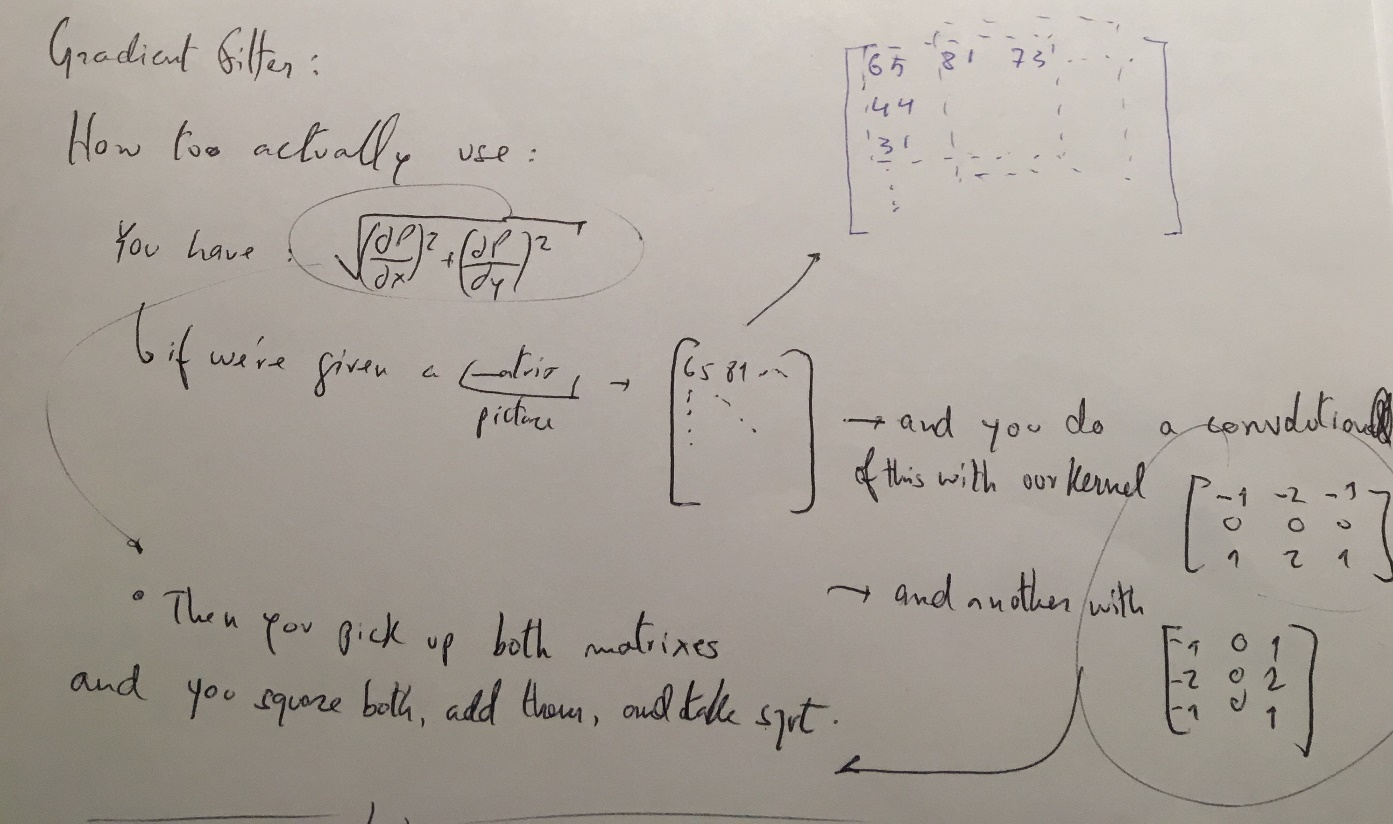 Gradient filter:
How too actually use:
You have: √((∂P/∂x)² + (∂P/∂y)²)
if we're given a matrix → [65 81 ...]
picture
[65 81 73 ...
44
31
⋮]
→ and you do a convolution
of this with our kernel [-1 -2 -1
0 0 0
1 2 1]
→ and another with
[-1 0 1
-2 0 2
-1 0 1]
• Then you pick up both matrixes
and you square both, add them, and take sqrt.